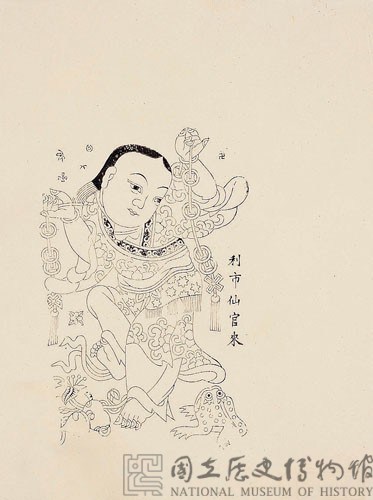 利市仙官來
國立歷史博物館
NATIONAL MUSEUM OF HISTORY